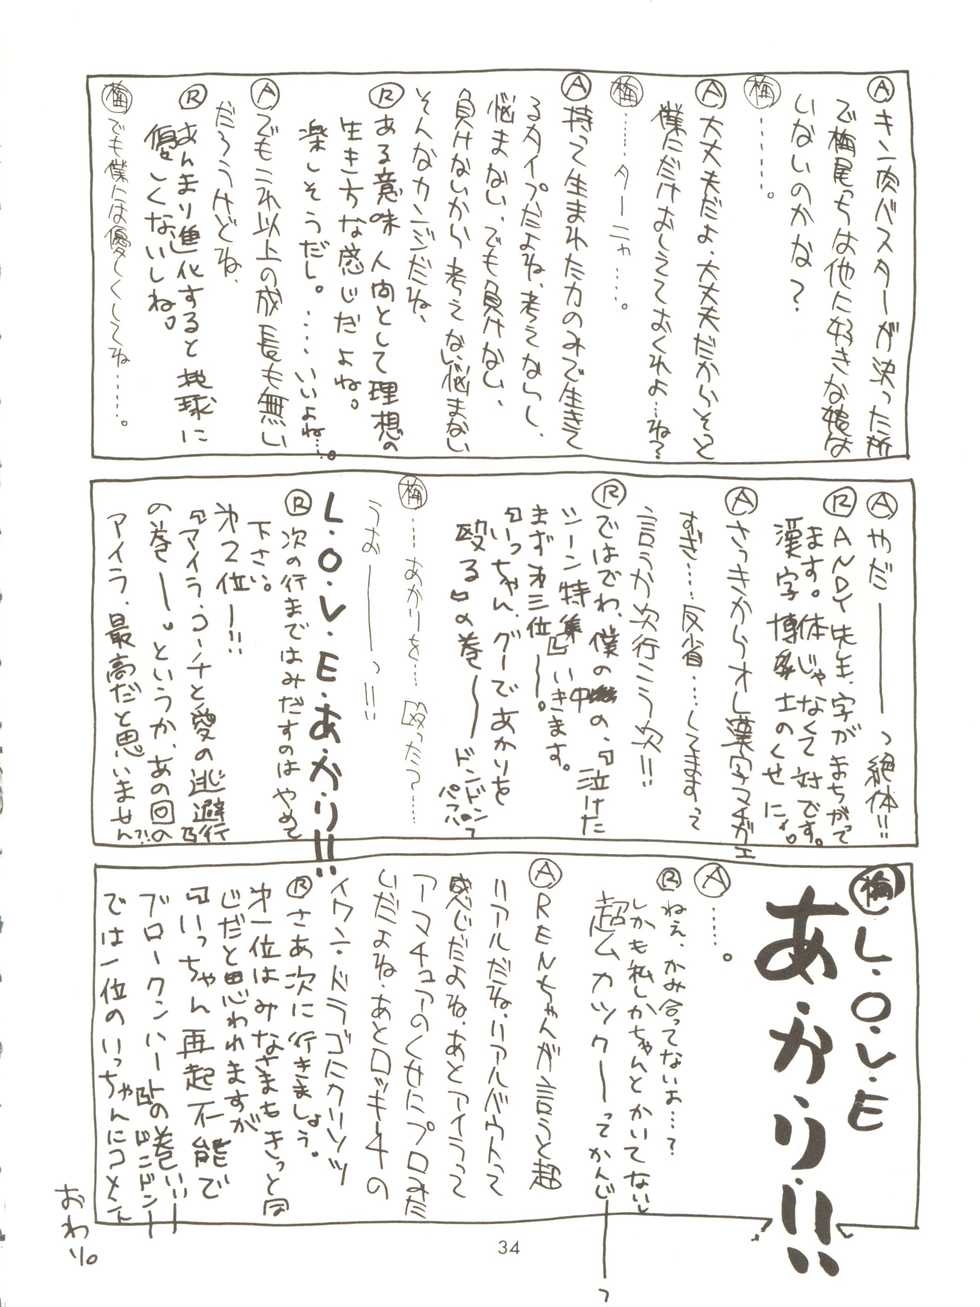 Ⓐキン肉バスターが決った所
で梅尾っちは他に好きな娘は
いないのかな？
㊞梅…………。
Ⓐ大丈夫だよ、大丈夫だからそっと
僕にだけおしえておくれよ…ね？
梅………ターニャ…。
Ⓐ持って生まれた力のみで生きて
るタイプだよね、考えないし、
悩まない、でも負けない、
負けないから考えない悩まない
そんなカンジだね、
Ⓡある意味人間として理想の
生き方な感じだよね。
楽しそうだし。………いいよね…。
Ⓐでもこれ以上の成長も無い
だろうけどね、
Ⓡあんまり進化すると地球に
優しくないしね。
梅でも僕には優しくしてね……。
Ⓐやだ――――っ絶体!!
ⓇANDY先生、字がまちがって
ます。体じゃなくて対です。
漢字博士のくせにィ。
Ⓐさっきからオレ漢字マチガエ
すぎ……反省……してますって
言うか次行こう次!!
Ⓡではでわ、僕の中の、『泣けた
シーン特集』いきます。
まず第三位―。
『いっちゃん、グーであかりを
殴る』の巻――ドンドン
パフパフ〜
梅……あかりを…殴った？…
うお―――っ!!
L・O・V・E・あ・か・り!!
Ⓡ次の行まではみだすのはやめて
下さい。
第2位―!!
『アイラ、コーチと愛の逃避行』
の巻――。というか、あの回の
アイラ、最高だと思いません？!
梅L・O・V・E
あ・か・り!!
Ⓐ……。
Ⓡねえ、かみ合ってないよ…？
しかも私しかちゃんとかいてないし
超ムカツク――ってかんじ――っ
ⒶRENちゃんが言うと超
リアルだね、リアルバウトって
感じだよね、あとアイラって
アマチュアのくせにプロみた
いだよね、あとロッキー4の
イワン・ドラゴにクリソツ
Ⓡさあ次に行きましょう。
第一位はみなさまもきっと同
じだと思われますが
『いっちゃん再起不能で
ブロークンハート』の巻い!!
ドンドン――
では一位のいっちゃんにコメント
おわり。
34